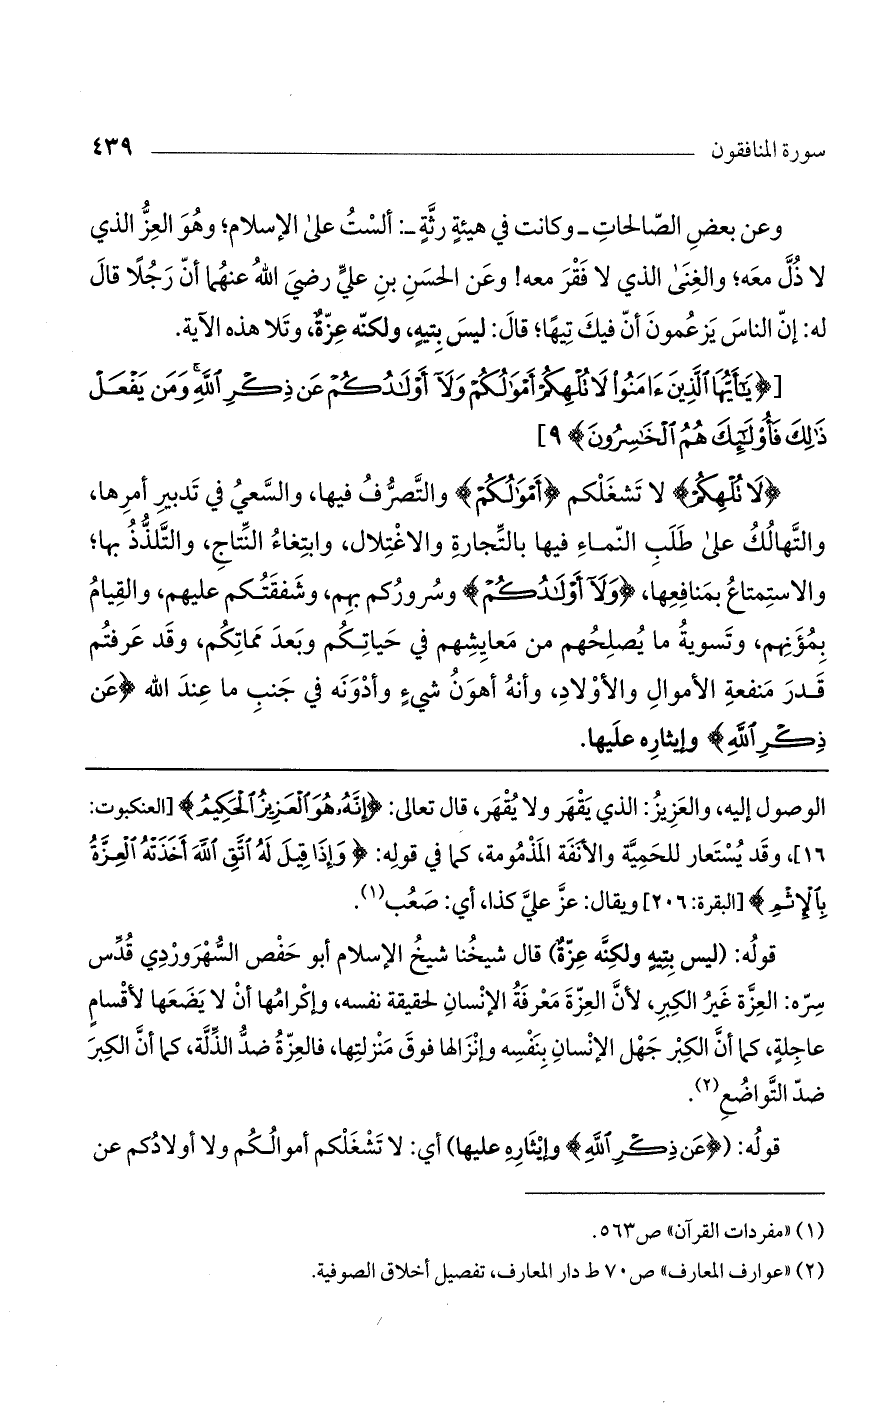 سورة المنافقون ٤٣٩
وعن بعضِ الصّالحاتِ ـ وكانت في هيئةٍ رثَّةٍ ـ: ألسْتُ علىٰ الإسلام؛ وهُوَ العِزُّ الذي
لا ذُلَّ معَه؛ والغِنَىٰ الذي لا فَقْرَ معه! وعَن الحسَنِ بنِ عليٍّ رضيَ اللهُ عنهُما أنّ رَجُلًا قالَ
له: إنّ الناسَ يَزعُمونَ أنّ فيكَ تِيهًا؛ قالَ: ليسَ بِتيهٍ، ولكنّه عِزّةٌ، وتَلا هذه الآية.
[﴿يَٰٓأَيُّهَا ٱلَّذِينَ ءَامَنُوا۟ لَا تُلْهِكُمْ أَمْوَٰلُكُمْ وَلَآ أَوْلَٰدُكُمْ عَن ذِكْرِ ٱللَّهِ ۚ وَمَن يَفْعَلْ
ذَٰلِكَ فَأُو۟لَٰٓئِكَ هُمُ ٱلْخَٰسِرُونَ﴾ ٩]
﴿لَا تُلْهِكُمْ﴾ لا تَشغَلْكم ﴿أَمْوَٰلُكُمْ﴾ والتَّصرُّفُ فيها، والسَّعيُ في تَدبيرِ أمرِها،
والتَّهالُكُ علىٰ طَلَبِ النّماءِ فيها بالتِّجارةِ والاغْتِلال، وابتِغاءُ النِّتاجِ، والتَّلذُّذُ بها؛
والاستِمتاعُ بمَنافِعِها، ﴿وَلَآ أَوْلَٰدُكُمْ﴾ وسُرورُكم بِهم، وشَفقَتُكم عليهم، والقِيامُ
بِمُؤَنِهم، وتَسويةُ ما يُصلِحُهم من مَعايِشِهم في حَياتِكُم وبَعدَ مَماتِكُم، وقَد عَرفتُم
قَدرَ مَنفعةِ الأموالِ والأوْلادِ، وأنهُ أهوَنُ شيءٍ وأدْوَنَه في جَنبِ ما عِندَ الله ﴿عَن
ذِكْرِ ٱللَّهِ﴾ وإيثارِه علَيها.
الوصول إليه، والعَزِيزُ: الذي يَقْهَر ولا يُقْهَر، قال تعالى: ﴿إِنَّهُۥ هُوَ ٱلْعَزِيزُ ٱلْحَكِيمُ﴾ [العنكبوت:
١٦]، وقَد يُسْتَعار للحَمِيَّة والأنَفَة المَذْمُومة، كما في قولِه: ﴿وَإِذَا قِيلَ لَهُ ٱتَّقِ ٱللَّهَ أَخَذَتْهُ ٱلْعِزَّةُ
بِٱلْإِثْمِ﴾ [البقرة: ٢٠٦] ويقال: عزَّ عليَّ كذا، أي: صَعُب(١).
قولُه: (ليس بِتِيهٍ ولكِنَّه عِزّةٌ) قال شيخُنا شيخُ الإسلام أبو حَفْص السُّهْرَورْدِي قُدِّس
سِرّه: العِزَّة غَيرُ الكِبرِ، لأنَّ العِزّةَ مَعْرفةُ الإنْسانِ لحقيقة نفسه، وإكْرامُها أنْ لا يَضَعَها لأقْسامٍ
عاجِلةٍ، كما أنَّ الكِبْر جَهْل الإنْسانِ بِنَفْسِه وإنْزَالها فوقَ مَنْزلتِها، فالعِزّةُ ضدُّ الذِّلَّة، كما أنَّ الكِبرَ
ضدّ التَّواضُعِ(٢).
قولُه: (﴿عَن ذِكْرِ ٱللَّهِ﴾ وإيْثَارِهِ عليها) أي: لا تَشْغَلْكم أموالُكُم ولا أولادُكم عن
(١) «مفردات القرآن» ص٥٦٣.
(٢) «عوارف المعارف» ص٧٠ ط دار المعارف، تفصيل أخلاق الصوفية.